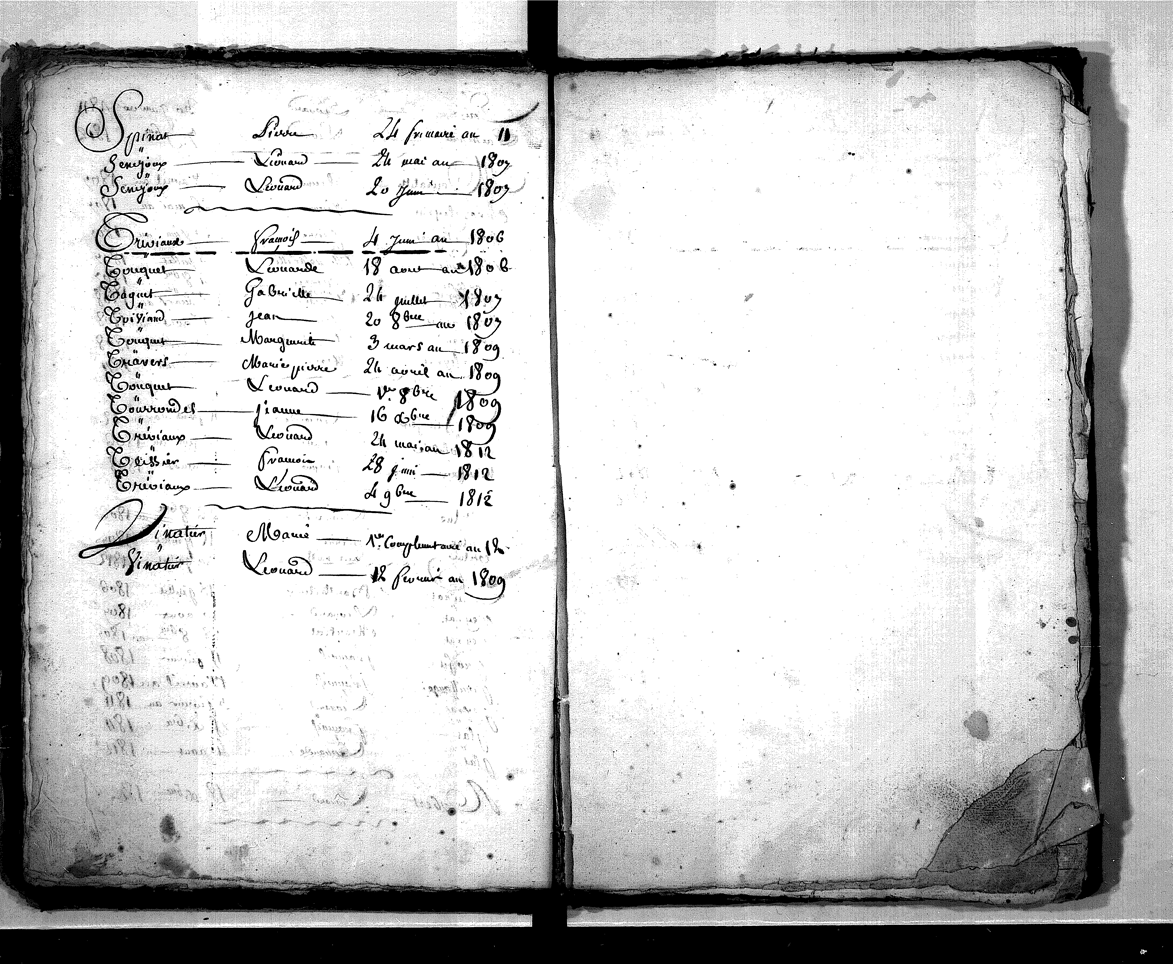 Spinat Pierre 24 frimaire an 11
Senejoux Léonard 24 mai an 1807
Senejoux Léonard 20 Juin 1807
Tréviaux François 4 Juin an 1806
Touquet Léonarde 18 aout an 1806
Taguet Gabrielle 24 juillet 1807
Jean 20 8bre an 1807
Touquet Marguerite 3 mars an 1809
Travers Marie pierre 24 avril an 1809
Touquet Léonard 1er 8bre 1809
Tourrondel Jeanne 16 1809
Tréviaux Léonard 24 mai an 1812
Teissier François 28 juin 1812
Tréviaux Léonard 4 9bre 1812
Vinatier Marie 1er Complementaire an 12
Vinatier Léonard 12 fevrier an 1809